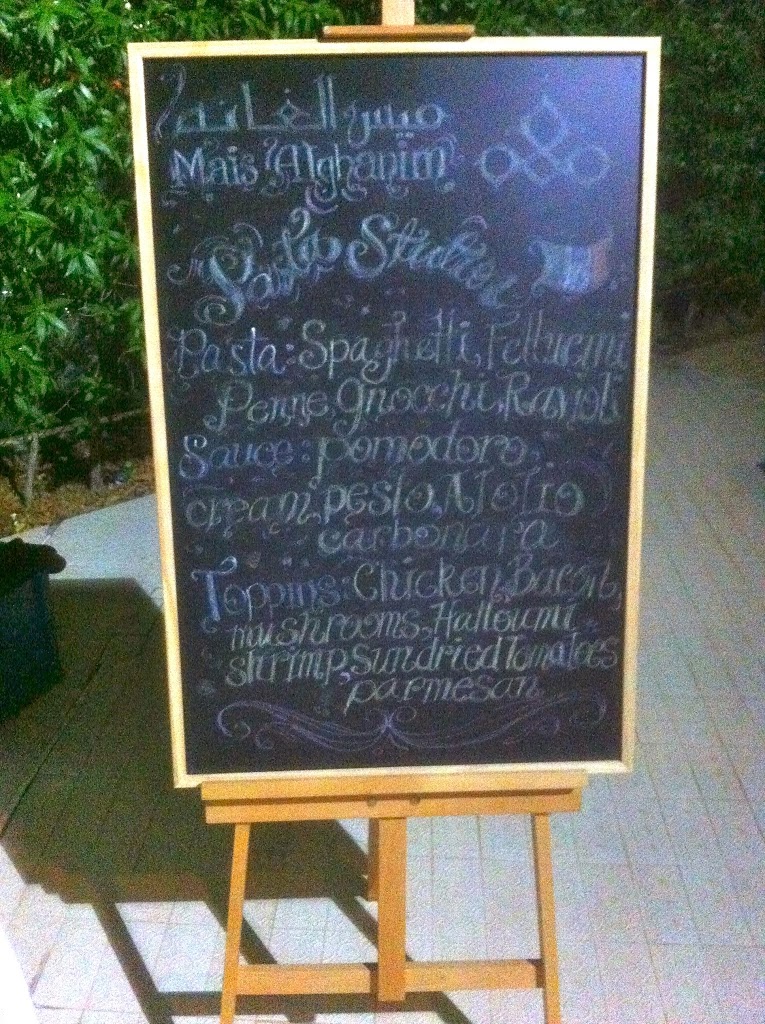 ميس الغانم
Mais Alghanim
Pasta Station
Pasta: Spaghetti, Fettucini
Penne, Gnocchi, Ravioli
Sauce: pomodoro,
Cream, pesto, Alolio
carbonara
Toppins: Chicken, Bacon,
mushrooms, Halloumi
shrimp, sundried Tomatoes
parmesan